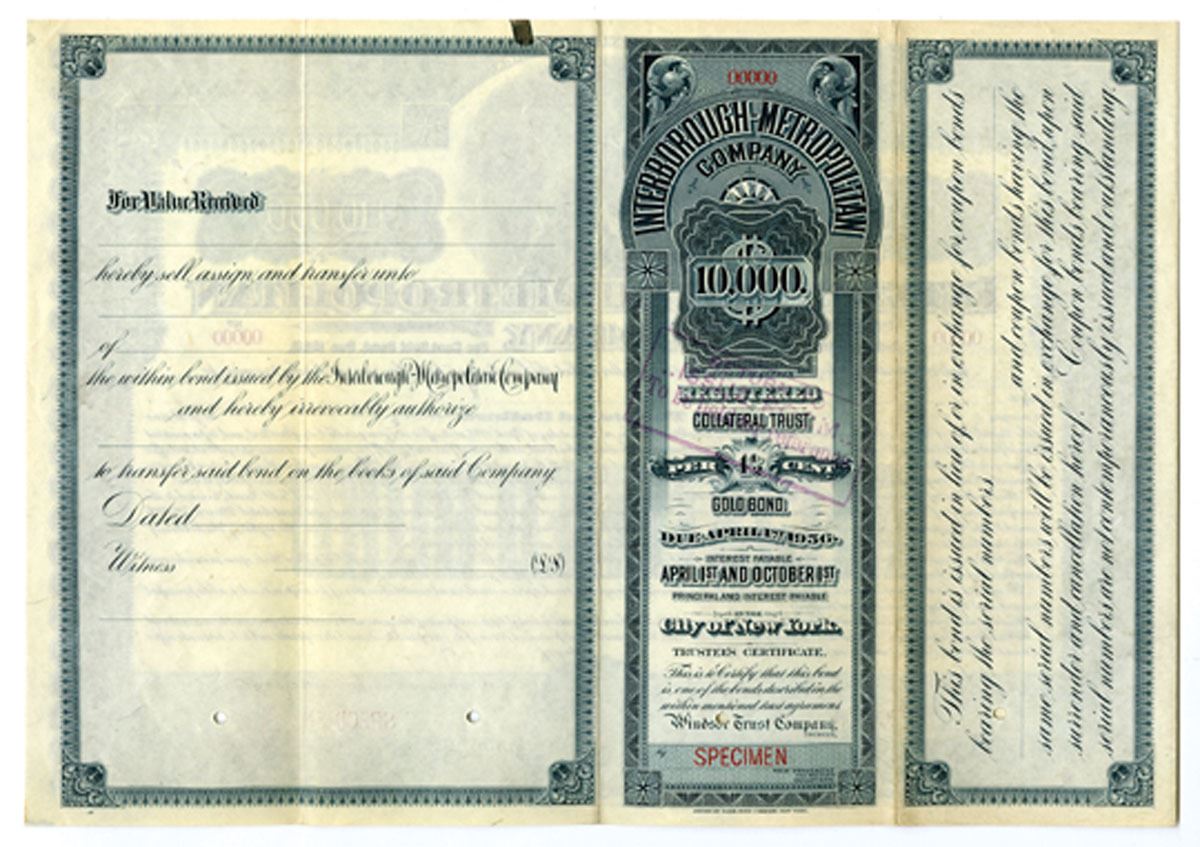 For Value Received
hereby sell, assign, and transfer unto
of
the within bond issued by the Interborough-Metropolitan Company
and hereby irrevocably authorize
to transfer said bond on the books of said Company.
Dated
Witness (L.S.)
00000
INTERBOROUGH-METROPOLITAN
COMPANY
$
10,000.
REGISTERED
COLLATERAL TRUST
PER 4½ CENT
GOLD BOND.
DUE APRIL 1ST, 1956.
INTEREST PAYABLE
APRIL 1ST AND OCTOBER 1ST
PRINCIPAL AND INTEREST PAYABLE
IN THE
City of New York.
TRUSTEE'S CERTIFICATE.
This is to Certify that this bond
is one of the bonds described in the
within mentioned trust agreement
Windsor Trust Company,
TRUSTEE,
By
SPECIMEN
This bond is issued in lieu of or in exchange for coupon bonds
bearing the serial numbers
and coupon bonds having the
same serial numbers will be issued in exchange for this bond, upon
surrender and cancellation hereof. Coupon bonds bearing said
serial numbers are not contemporaneously issued and outstanding.